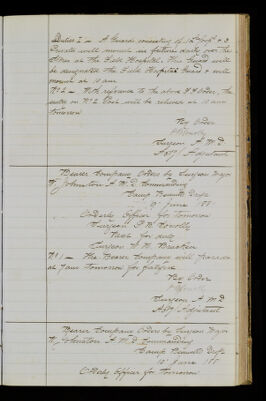 Duties I – A Guard consisting of 1 Corpl & 3
Private will mount in future daily over the
Stores at the Field Hospital. This Guard will
be designated the Field Hospital Guard & will
mount at 10 am
No 2 – With reference to the above Order, the
sentry on No 2 Post will be relieved at 10 am
tomorrow
By Order
Surgeon A M D
Adjutant
Bearer Company Orders by Surgeon Major
W Johnston A M D Commanding
Camp
9 June
Orderly Officer for tomorrow
Surgeon
Next for duty
Surgeon
No 1 – The Bearer Company will parade
at 7 am tomorrow for fatigue
By Order
Surgeon A M D
Adjutant
Bearer Company Orders by Surgeon Major
W Johnston A M D Commanding
Camp
10 June
Orderly Officer for tomorrow